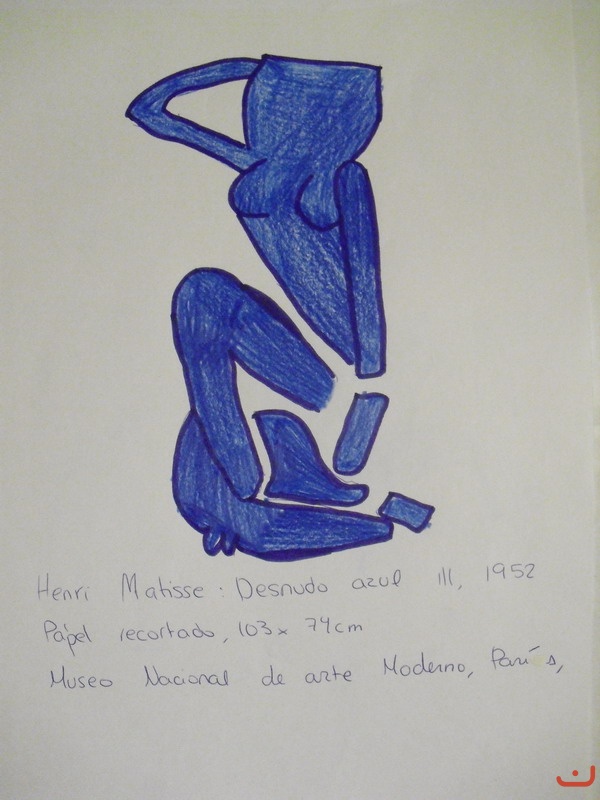 Henri Matisse : Desnudo azul III, 1952
Pápel recortado, 103 x 74 cm
Museo Nacional de arte Moderno, París,